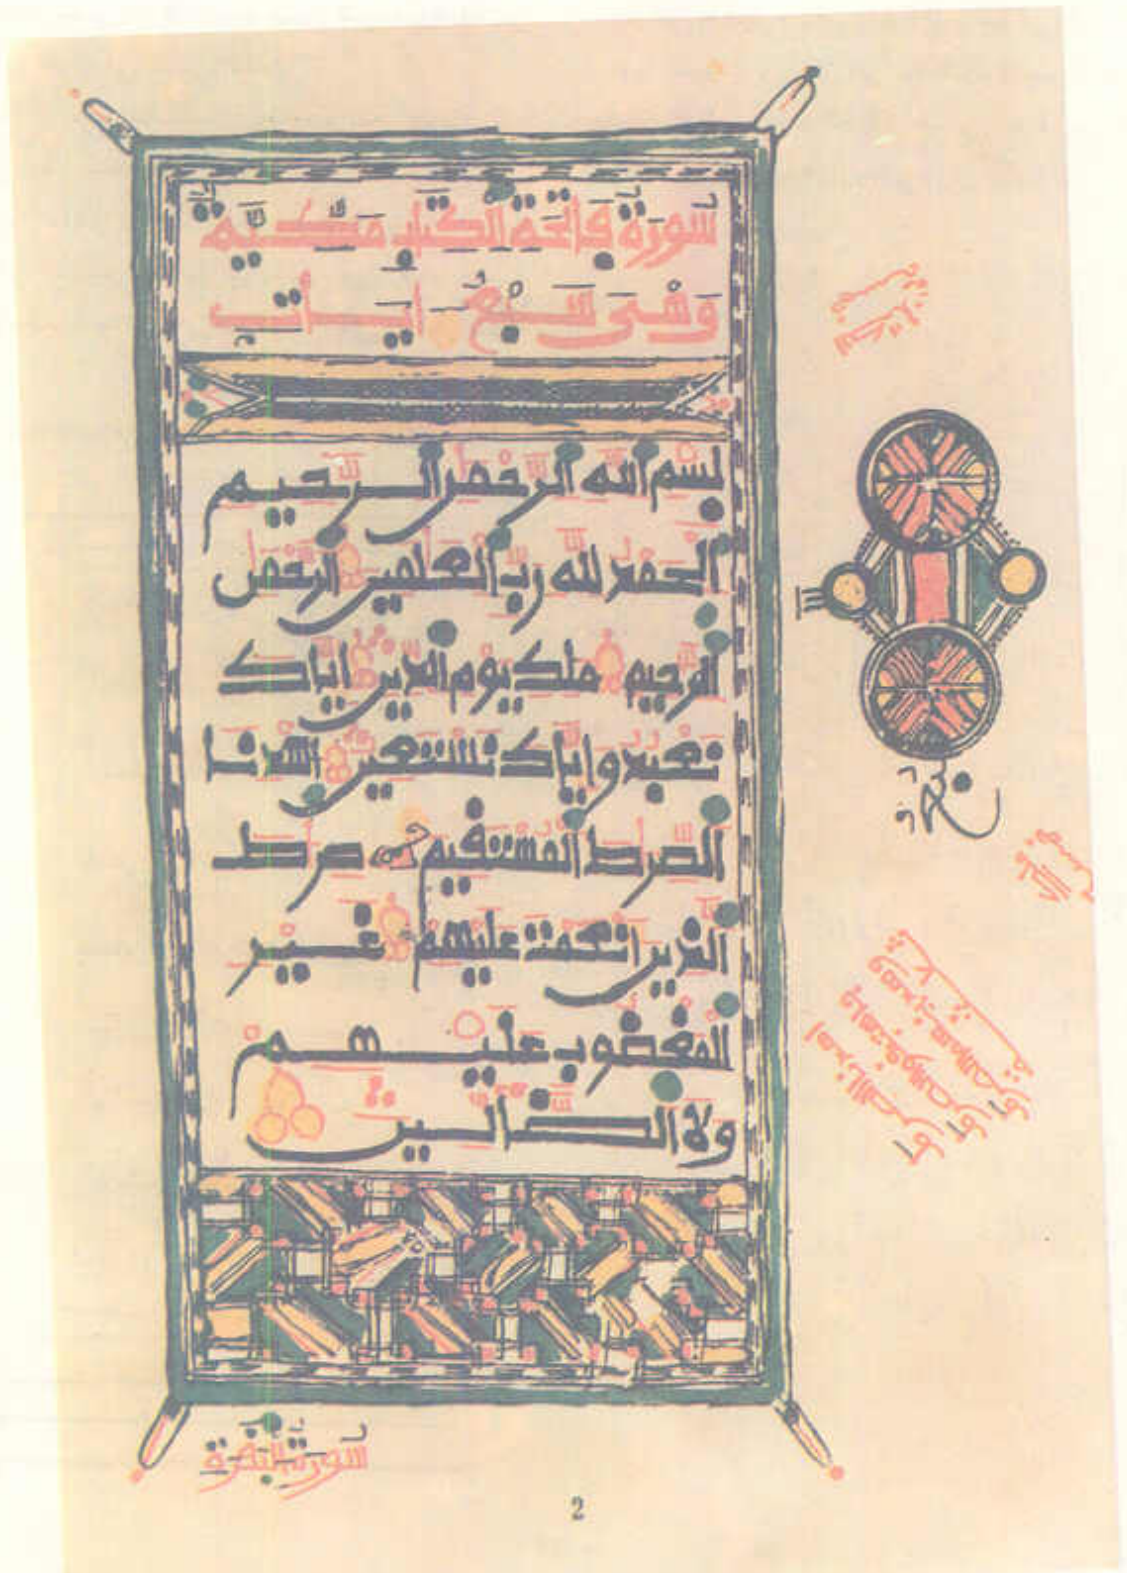 سُورَةُ فَاتِحَةِ الْكِتٰبِ مَكِّيَّةٌ
وَهْىَ سَبْعُ ءَايَاتٍ
بسم الله الرحمن الرحيم
الحمد لله رب العلمين الرحمن
الرحيم ملك يوم الدين اياك
نعبد واياك نستعين اهدنا
الصرط المستقيم صرط
الذين انعمت عليهم غير
المغضوب عليهم
ولا الضالين
سورة البقرة
2